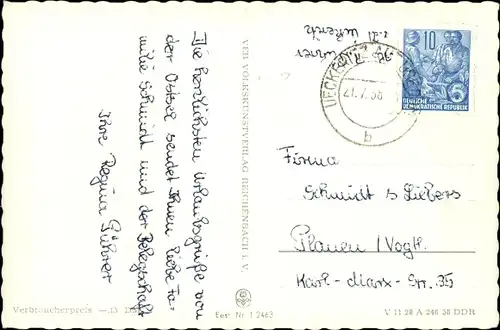 Die herzlichsten Urlaubsgrüße von
der Ostsee sendet Ihnen liebe Fa-
milie Schmidt und der Belegschaft
Ihre Regina Führer
VEB VOLKSKUNSTVERLAG REICHENBACH I. V.
10
DEUTSCHE
DEMOKRATISCHE REPUBLIK
21.7.58
b
Firma
Schmidt & Liebers
Plauen / Vogtl.
Karl-Marx-Str. 35
Verbraucherpreis —.13 DM
Best Nr 1 2463
V 11 28 A 246 58 DDR